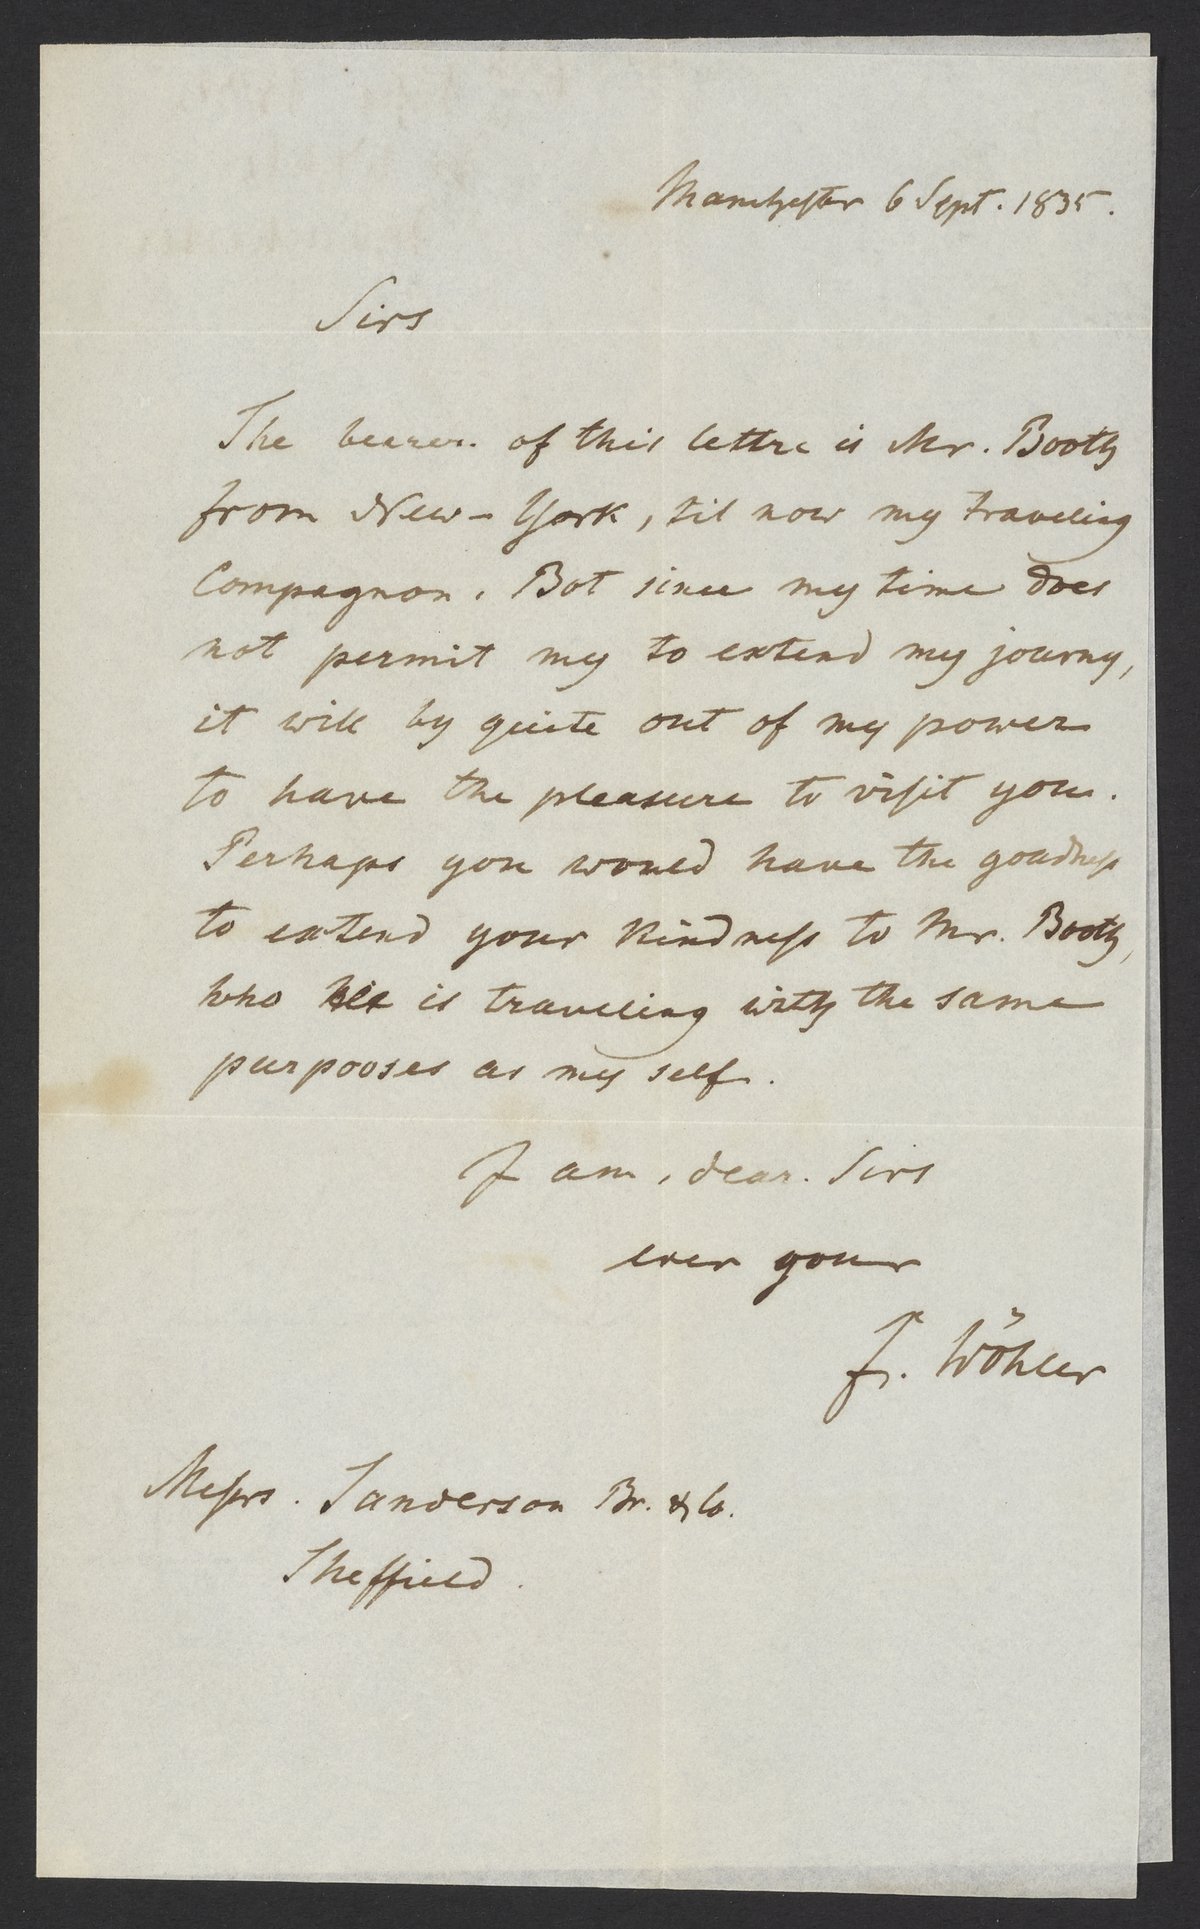 Manchester 6 Sept. 1835.
Sirs
The bearer of this lettre is Mr. Booth
from New-York, til now my traveling
Compagnon. Bot since my time does
not permit my to extend my journy,
it will by quite out of my power
to have the pleasure to visit you.
Perhaps you would have the goodness
to extend your Kindness to Mr. Booth,
who is traveling with the same
purpooses as my self.
I am, dear Sirs
ever your
F. Wöhler
Messrs. Sanderson Br. & Co.
Sheffield.